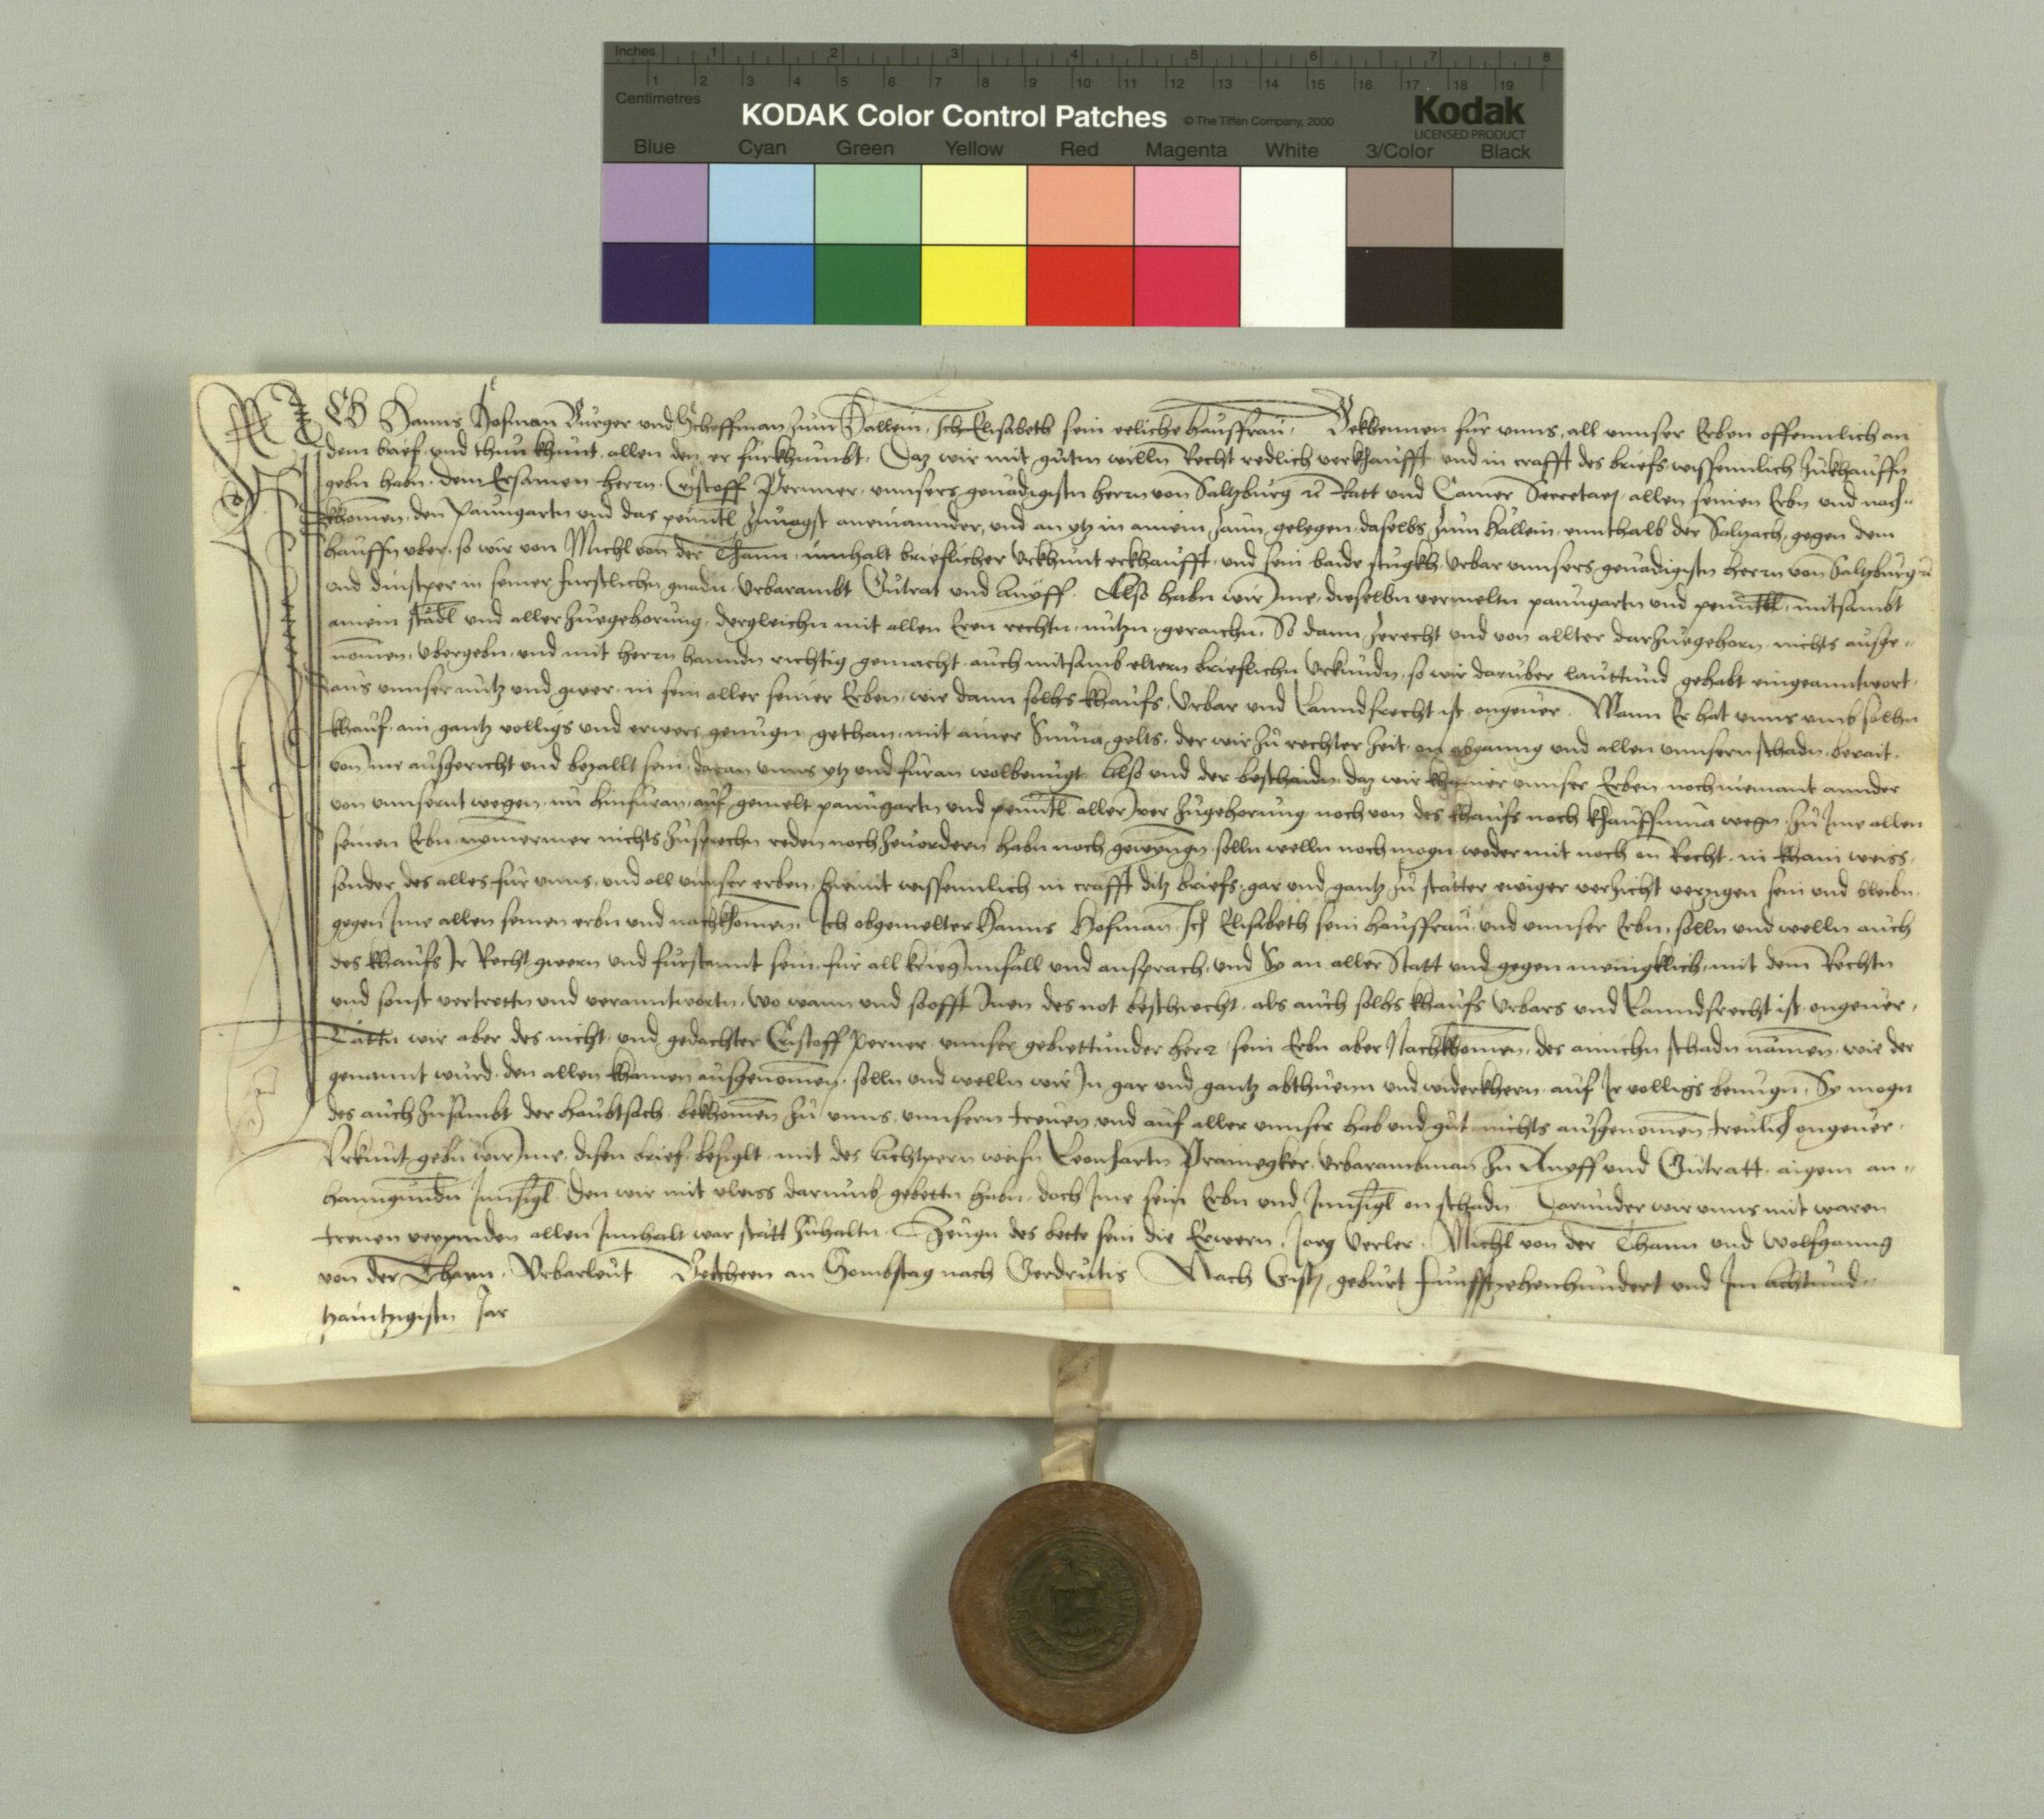 Inches 1 2 3 4 5 6 7 8
1 2 3 4 5 6 7 8 9 10 11 12 13 14 15 16 17 18 19
Centimetres
KODAK Color Control Patches © The Tiffen Company, 2000 Kodak
LICENSED PRODUCT
Blue Cyan Green Yellow Red Magenta White 3/Color Black
ICH Hanns Hofman Burger und Scheffman zum Hallein, Ich Elisabeth sein eeliche hausfrau, Bekhennen für unns, all unnser Erben offennlich an
dem brief, und thun khunt, allen den er fürkhumbt, Daz wir mit gutm willn Recht redlich verkhaufft und in crafft des briefs wissennlich zukhauffn
gebn habn, dem Ersamen herrn Cristoff Pernner, unnsers genadigistn herrn von Saltzburg rc Ratt und Camer Secretarj, allen seinen Erbn und nach-
khomen, den Paumgartn und das peunntl zunagst aneinannder, und an ytz in ainem zaun, gelegen daselbs zum hällein, ennthalb der Saltzach, gegen dem
hauffn uber, so wir von Michl von der Thann, innhalt brieflicher Urkhunt erkhaufft, und sein baide stugkh Urbar unnsers genadigistn herrn von Saltzburg rc
und dinstper in seiner furstlichn gnadn Urbarambt Gutrat und Anyff. Also habn wir Ime, dieselbn vermeltn paumgartn und peunntl, mitsambt
ainem städl und aller zuegehorung, dergleichn mit allen Eren rechtn, nutzn, geraichn, So dann zerecht und von allter darzuegehorn, nichts ausge-
nomen, Ubergebn, und mit herrn hanndn richtig gemacht, auch mitsamb eltern brieflichn Urkundn, so wir daruber lauttund gehabt eingeanntwort,
aus unnser nutz und gwer, in sein aller seiner Erben, wie dann solhs khaufs, Urbar und Lanndsrecht ist, ongeuer. Wann Er hat unns umb solhn
khauf, ain gantz volligs und erwers genugn gethan, mit ainer Suma gelts, der wir zu rechter zeit, on abganng und allen unnsern schadn, berait,
von Ime ausgericht und bezallt sein, daran unns ytz und füran wolbenügt. Also und der beschaidn, daz wir khainer unnser Erben noch niemant annder
von unnsernt wegen, nu hinfüran, auf gemelt paumgartn und peunntl aller Irer zugehorung, noch von des khaufs noch khaufsuma wegn, zu Ime allen
seinen Erbn, nymermer nichts zusprechn reden noch zeuordern habn noch gewyngn, solln welln noch mogn, weder mit noch on Recht, in khain weiss,
sonder des alles für unns, und all unnser erben, hiemit wissennlich in crafft ditz briefs, gar und gantz zu statter ewiger verzicht verzigen sein und bleibn,
gegen Ime allen seinen erbn und nachkhomen. Ich obgemelter Hanns Hofman, Ich Elisabeth sein hausfrau, und unnser Erbn, solln und welln auch
des khaufs Ir Recht gwern und fürstannt sein, für all krieg Innfäll und ansprach, und Sy an aller Statt und gegen menigklich, mit dem Rechtn
und sonst vertrettn und veranntwortn, wo wann und soofft Inen des not beschiecht, als auch solhs khaufs Urbars und Lanndsrecht ist, ongeuer,
Tättn wir aber des nicht, und gedachter Cristoff Perner, unnser gebiettunder herr, sein Erbn aber Nachkhomen, des ainichn schadn namen, wie der
genannt wurd, den allen khainen ausgenomen, solln und welln wir In gar und gantz abthuenn und widerkhern, auf Ir volligs benugn. Sy mogn
des auch zusambt der haubtsach, bekhomen zu unns, unnsern treuen, und auf aller unnser hab und gut, nichts ausgenomen, treulich ongeuer.
Urkunt gebn wir Ime, disen brief, besiglt, mit des Achtpern weisn Leonhartn Pramegker, Urbarambman zu Anyff und Gutratt, aigem an-
hanngundn Innsigl, Den wir mit vleiss darumb gebettn habn, doch Ime sein Erbn und Innsigl on schadn, Darunder wir unns mit waren
treuen verpinden allen Innhalt war statt zuhaltn. Zeugn des bette sein die Erwern, Jorg Verler, Michl von der Thann und Wolfganng
von der Thann, Urbarleut. Beschehen an Sambstag nach Gerdrutis Nach Cristj geburt Funffzehenhundert und Im Achtund-
tzaintzigistn Jar